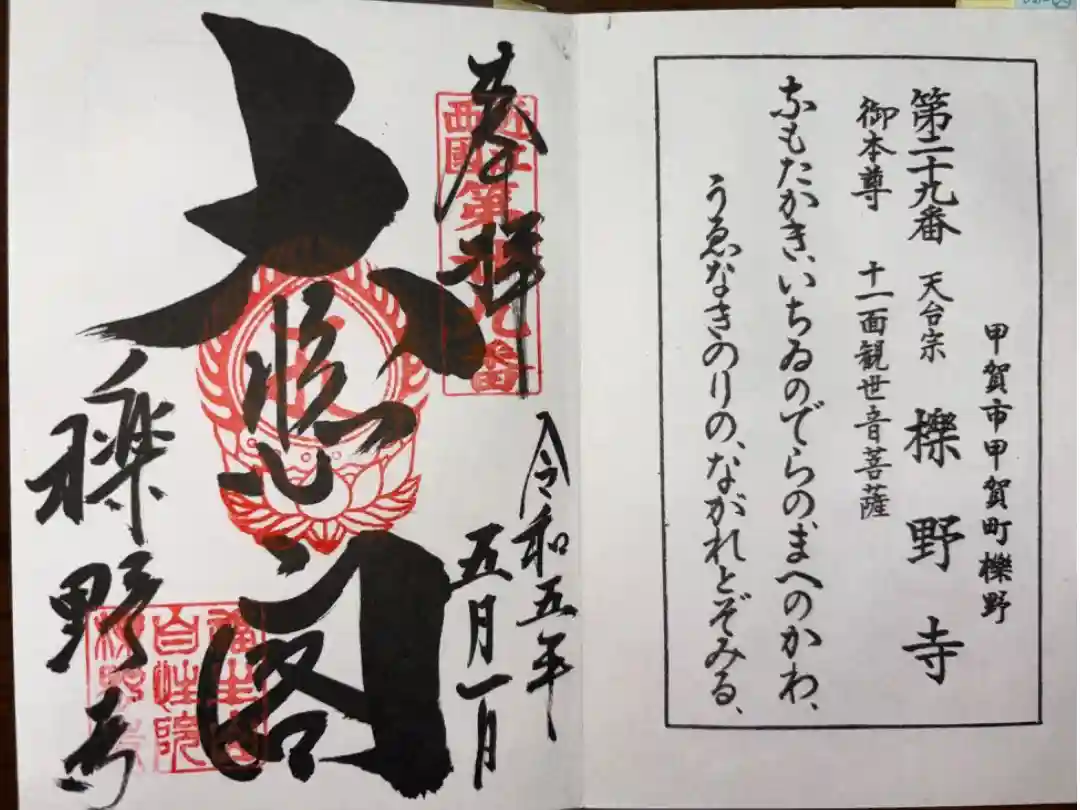 甲賀市甲賀町櫟野
第二十九番 天台宗 櫟野寺
御本尊 十一面観世音菩薩
なもたかき、いちゐのでらのまへのかわ、
うゑなきのりの、ながれとぞみる、
奉拝
近江
西國
第廿九番
令和五年
五月一日
大悲閣
櫟野寺
福生山
自性院
櫟野寺